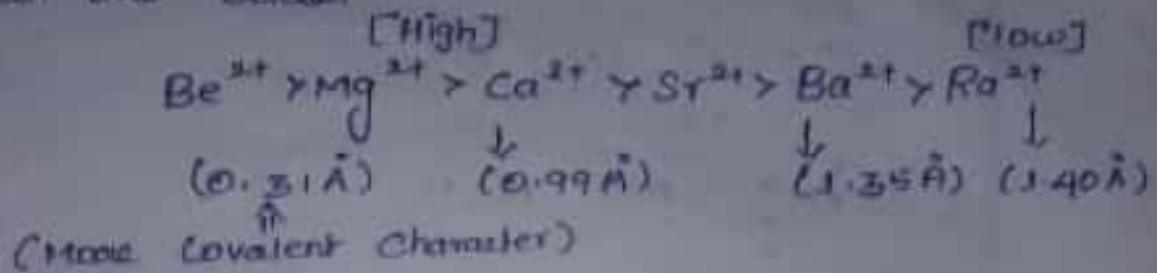 [High] [low]
Be²⁺ > Mg²⁺ > Ca²⁺ > Sr²⁺ > Ba²⁺ > Ra²⁺
↓ ↓ ↓
(0.31Å) (0.99Å) (1.35Å) (1.40Å)
⇑
(More Covalent Character)